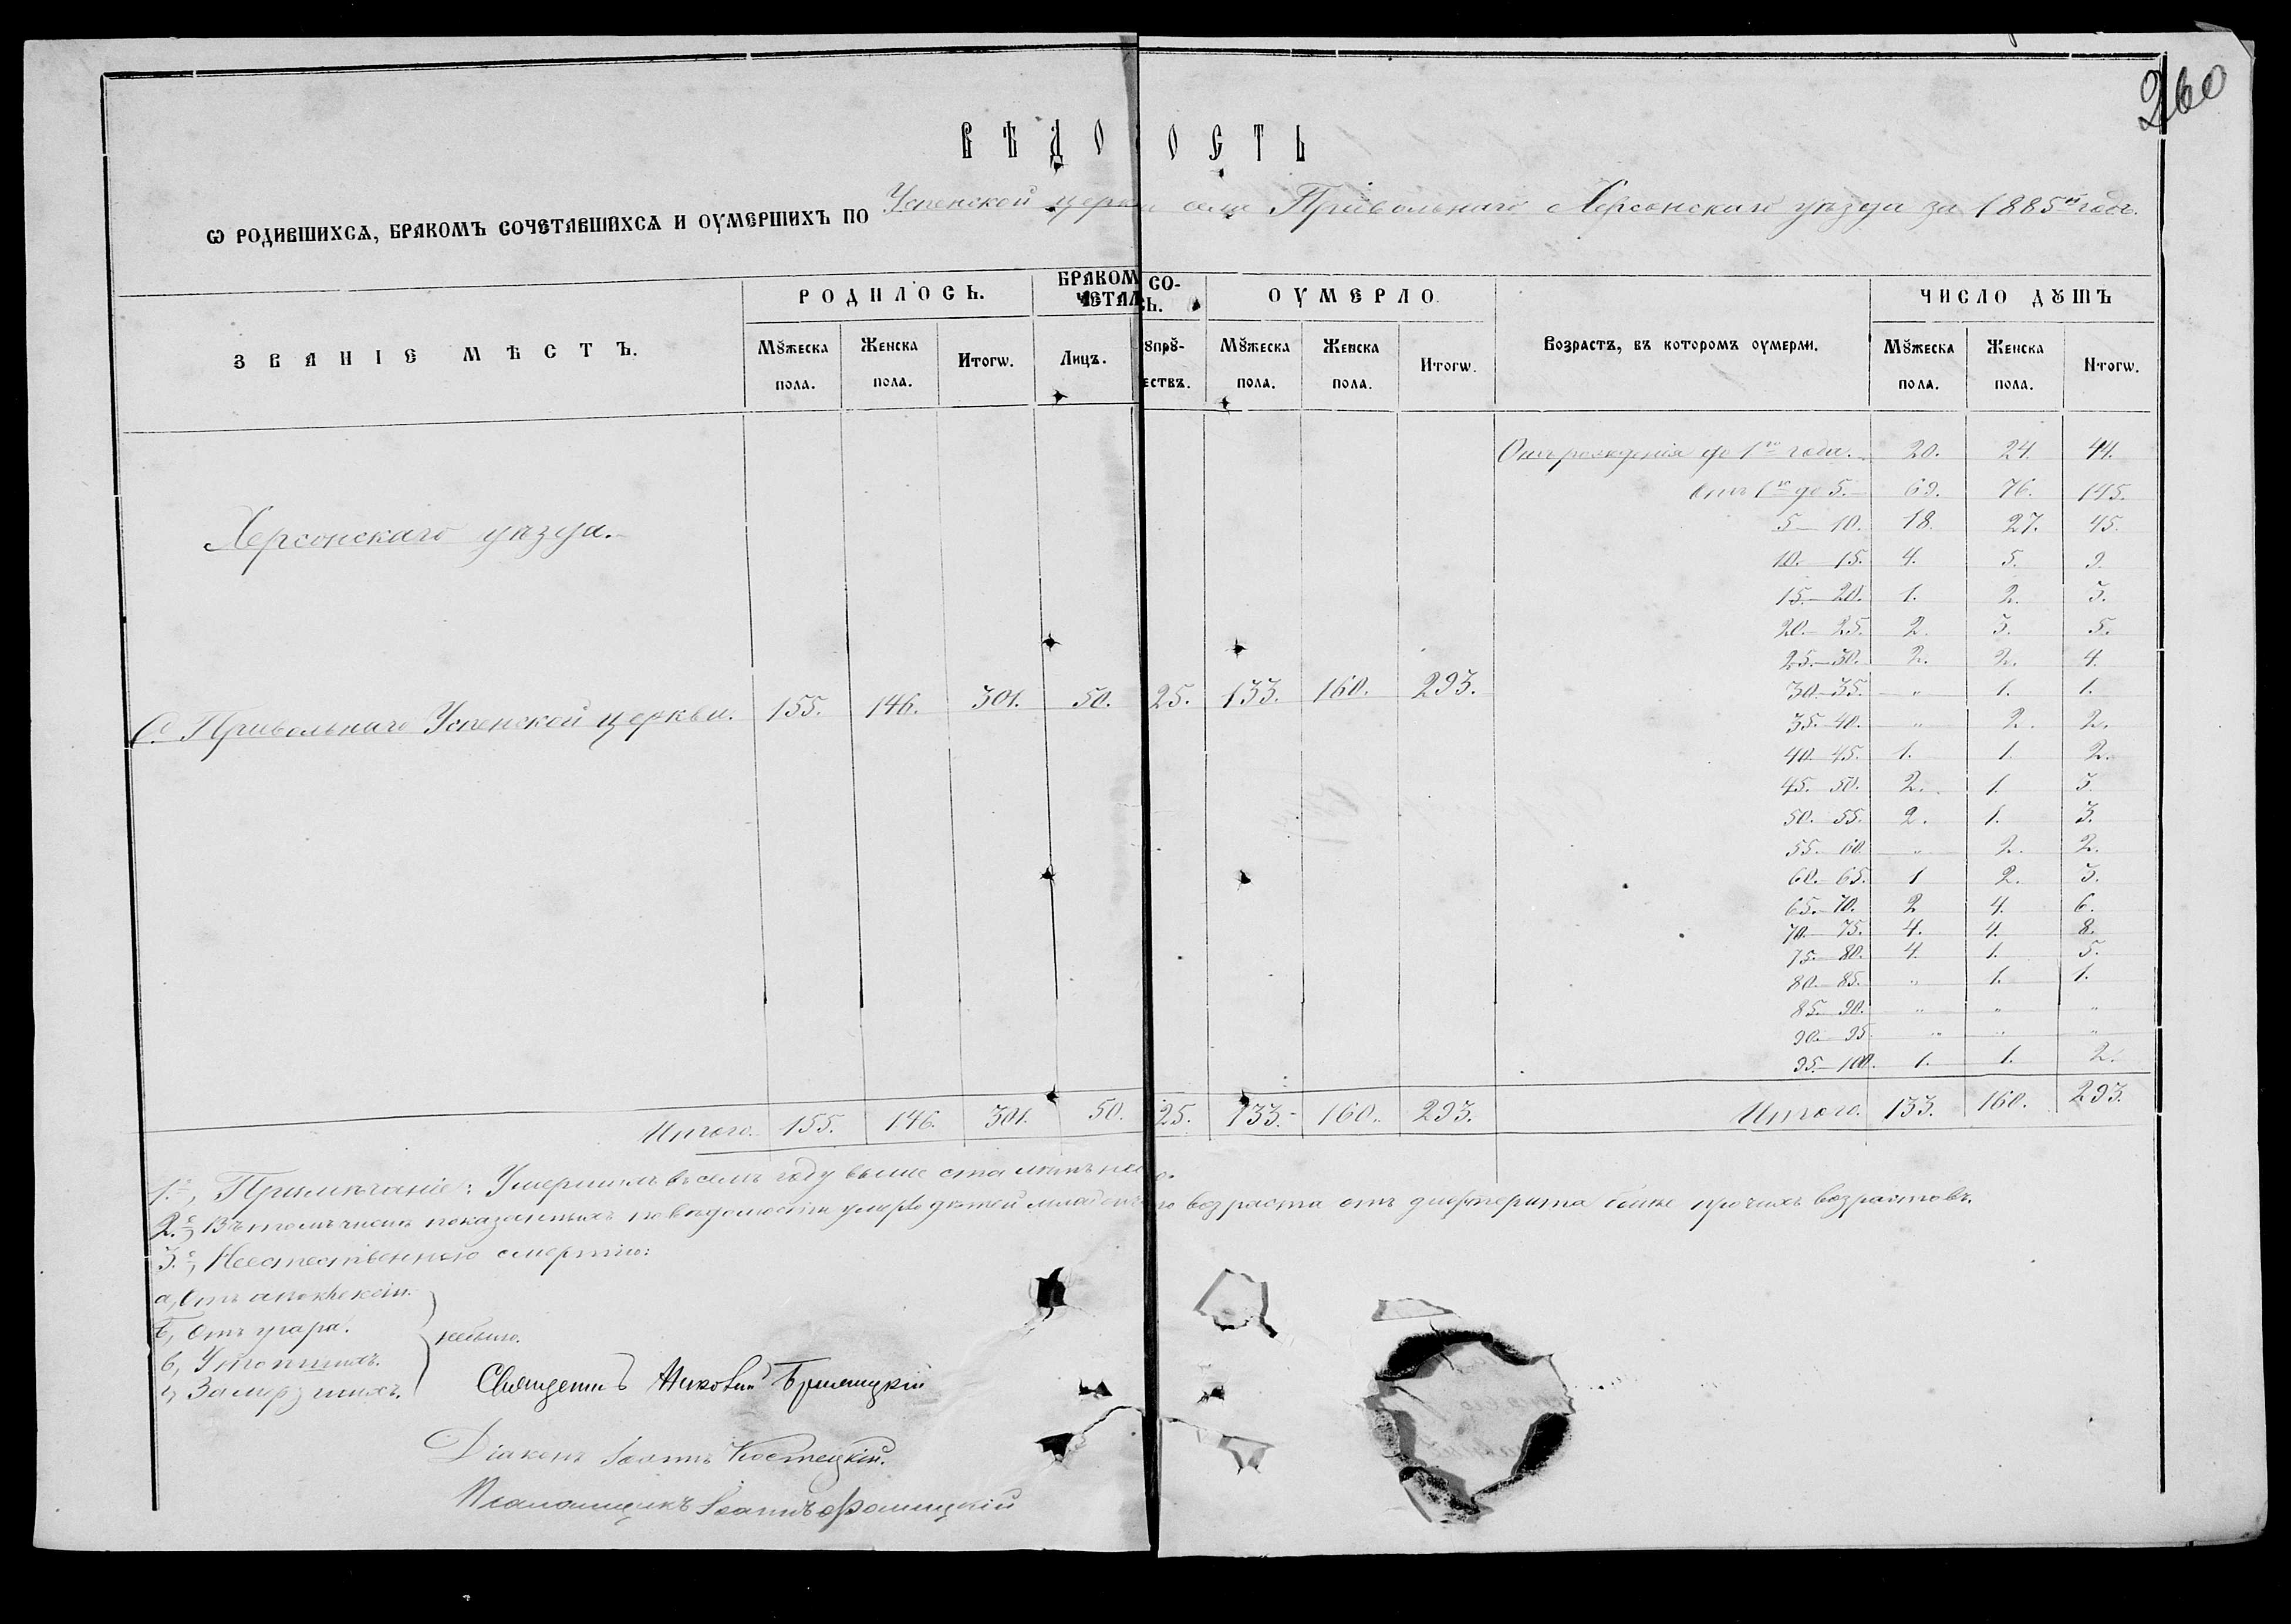 260
ВѢДО ОСТЬ
Ѡ РОДИВШИХСѦ, БРАКОМЪ СОЧЕТАВШИХСѦ И ОУМЕРШИХЪ ПО Успенской церкви села Привольнаго Херсонскаго уѣзда за 1885й годъ.
ЗВАНІЕ МѢСТЪ.
РОДИЛОСЬ.
БРАКОМ СО-
ЧЕТАЛ СЬ.
ОУМЕРЛО.
Возрастъ, въ которомъ оумерли.
ЧИСЛО ДꙊШЪ
Мꙋжеска пола.
Женска пола.
Итогѡ.
Лицъ.
ꙋпрꙋ-
ествъ.
Мꙋжеска пола.
Женска пола.
Итогѡ.
Мꙋжеска пола.
Женска пола.
Итогѡ.
Отъ рожденія до 1го года. 20. 24. 44.
Отъ 1го до 5. 69. 76. 145.
Херсонскаго уѣзда.
5 — 10. 18. 27. 45.
10. 15. 4. 5. 9.
15. — 20. 1. 2. 3.
20. — 25. 2. 3. 5.
25. — 30. 2. 2. 4.
С. Привольнаго Успенской церкви. 155. 146. 301. 50. 25. 133. 160. 293.
30. — 35. „ 1. 1.
35. 40. „ 2. 2.
40. 45. 1. 1. 2.
45. 50. 2. 1. 3.
50. 55. 2. 1. 3.
55. 60. „ 2. 2.
60. 65. 1 2. 3.
65. — 70. 2 4. 6.
70. 75. 4. 4. 8.
75. — 80. 4 1. 5.
80. — 85. „ 1. 1.
85. 90. „ „ „
90. — 95. „ „ „
95. — 100. 1. 1. 2.
Итого. 155. 146. 301. 50. 25. 133. 160. 293. Итого. 133. 160. 293.
1.е, Примѣчаніе: Умершихъ въ семъ году выше ста лѣтъ не
2.е, Въ томъ числѣ показанныхъ по вѣдомости умерло дѣтей возраста отъ дифтерита болѣе прочихъ возрастовъ.
3.е, Неестественною смертію:
а, Отъ
б, Отъ угара.
небыло.
в, Утопшихъ.
г, Замерзшихъ.
Священникъ
Діаконъ Іоаннъ Костецкій.
Псаломщикъ Іоаннъ